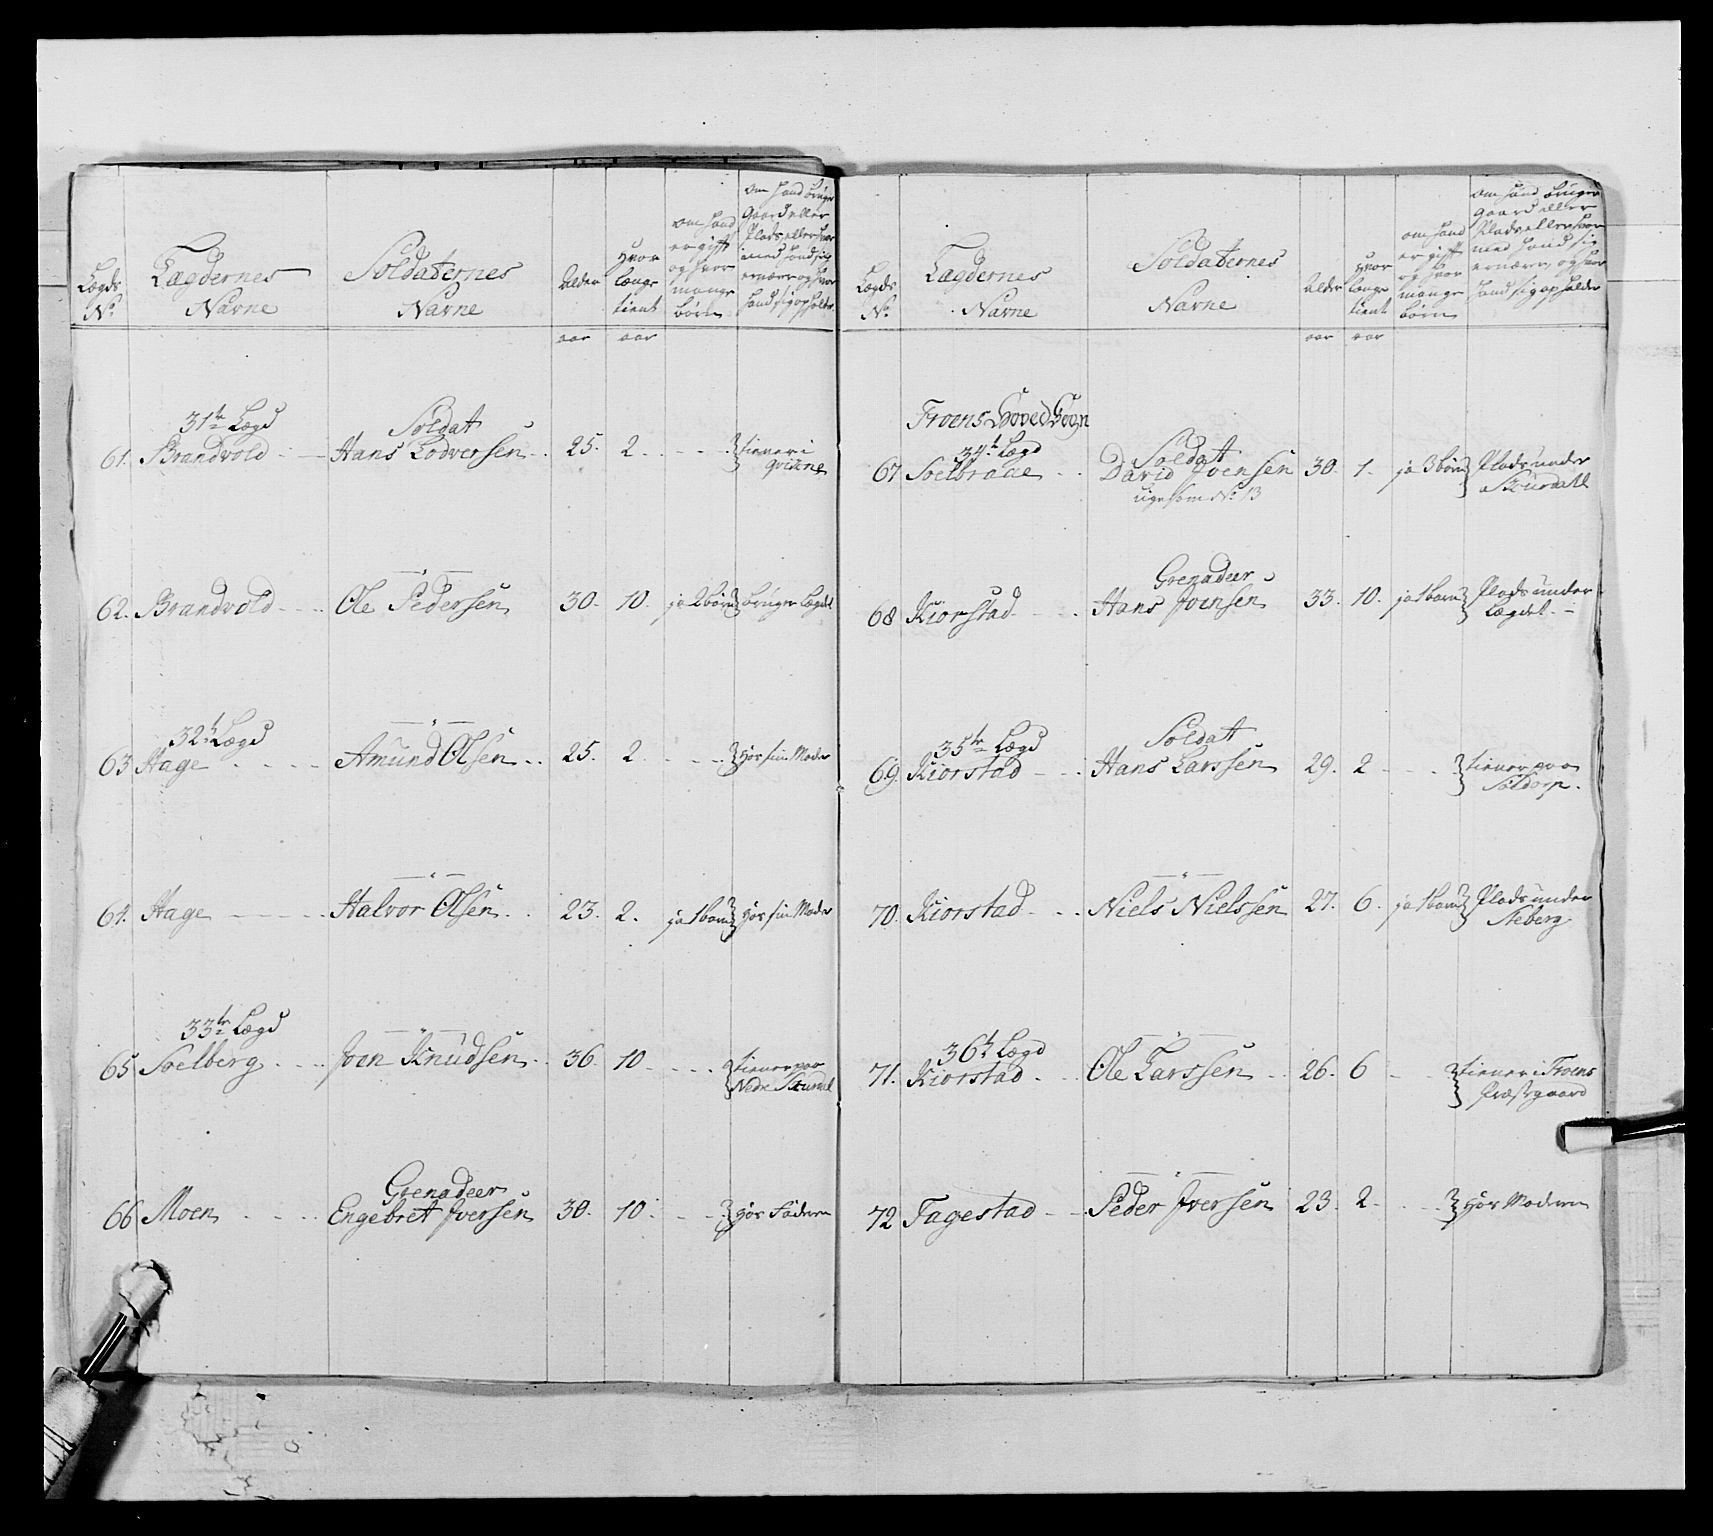 Lægds No.
Lægdernes Navne
Soldaternes Navne
Alder
Hvor længe tient
om hand er gift og hvor mange børn
om hand bruger Gaard eller Plads eller hvor med hand sig ernærer og hvor hand sig opholder
aar aar
31te Lægd Soldat
61. Brandvold Hans Lodversen 25. 2. tiener i
Qvikne
62. Brandvold Ole Pedersen 30. 10. ja 2 børn bruger Lægdet
32te Lægd
63 Hage Amund Olsen 25. 2. Hos sin Moder
64. Hage Halvor Olsen 23. 2. ja 1 barn Hos sin Moder
33te Lægd
65 Soelberg Joen Knudsen 36. 10. tiener paa
Nedre
Grenadeer
66 Moen Engebret Iversen 30. 10. Hos Faderen
Lægds No.
Lægdernes Navne
Soldaternes Navne
Alder
Hvor længe tient
om hand er gift og hvor mange børn
om hand bruger Gaard eller Plads eller hvor med hand sig ernærer, og hvor hand sig opholder
aar aar
Froens Hoved Sogn
34te Lægd Soldat
67 Soelbraae David Joensen 30. 1. ja 3 børn Plads under
ligesom No. 13
Grenadeer
68 Kiorstad Hans Joensen 33. 10. ja 1 barn Plads under
Lægdet
35te Lægd Soldat
69. Kiorstad Hans Larssen 29. 2 tiener paa
Soldorp.
70. Kiorstad Niels Nielssen 27. 6. ja 1 barn Plads under
Steberg
36te Lægd
71. Kiorstad Ole Larssen 26. 6 tiener i Froens
Præstegaard
72 Fagestad Peder Iversen 23. 2. Hos Moderen